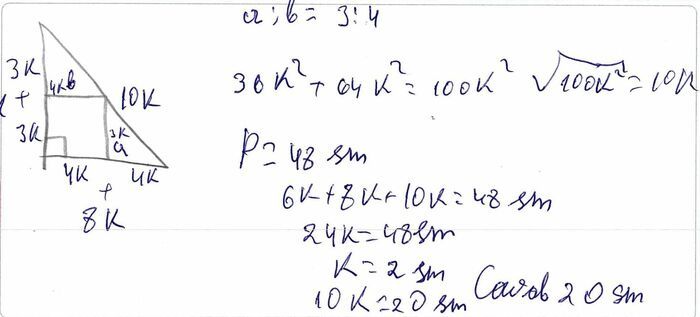 a : b = 3 : 4
3K
4K b
10K
+
3K
3K
a
4K
4K
+
8K
36K² + 64K² = 100K² √100K² = 10K
P = 48 sm
6K + 8K + 10K = 48 sm
24K = 48 sm
K = 2 sm
10K = 20 sm
20 sm